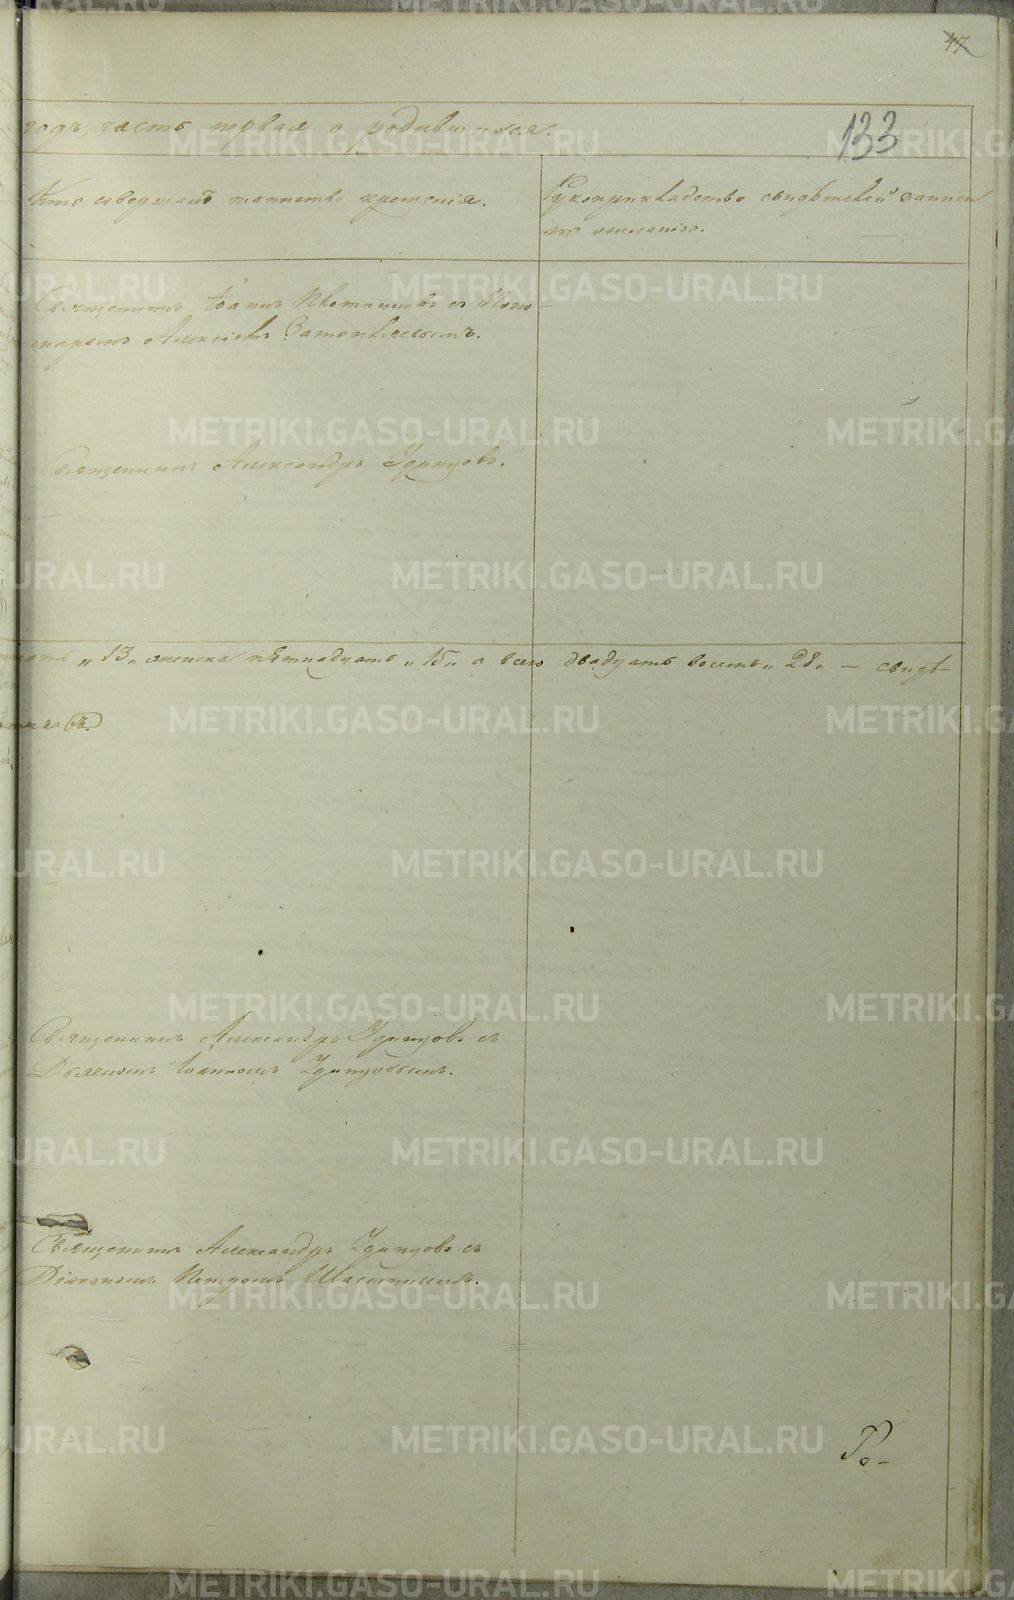 47.
133
годъ, часть первая о родившихся.
Кто совершалъ таинство крещенія.
Рукоприкладство свидѣтелей записи
по желанію.
Священникъ Іоаннъ
Алексіемъ
Священникъ Александръ Удинцовъ.
"13" женска пятнадцать "15" а всего двадцать восемь "28" — свидѣ-
Священникъ Александръ Удинцовъ съ
Дьякономъ Іоанномъ Удинцовымъ.
Священникъ Александръ Удинцовъ съ
Діакономъ Петромъ
Ро-
METRIKI.GASO-URAL.RU